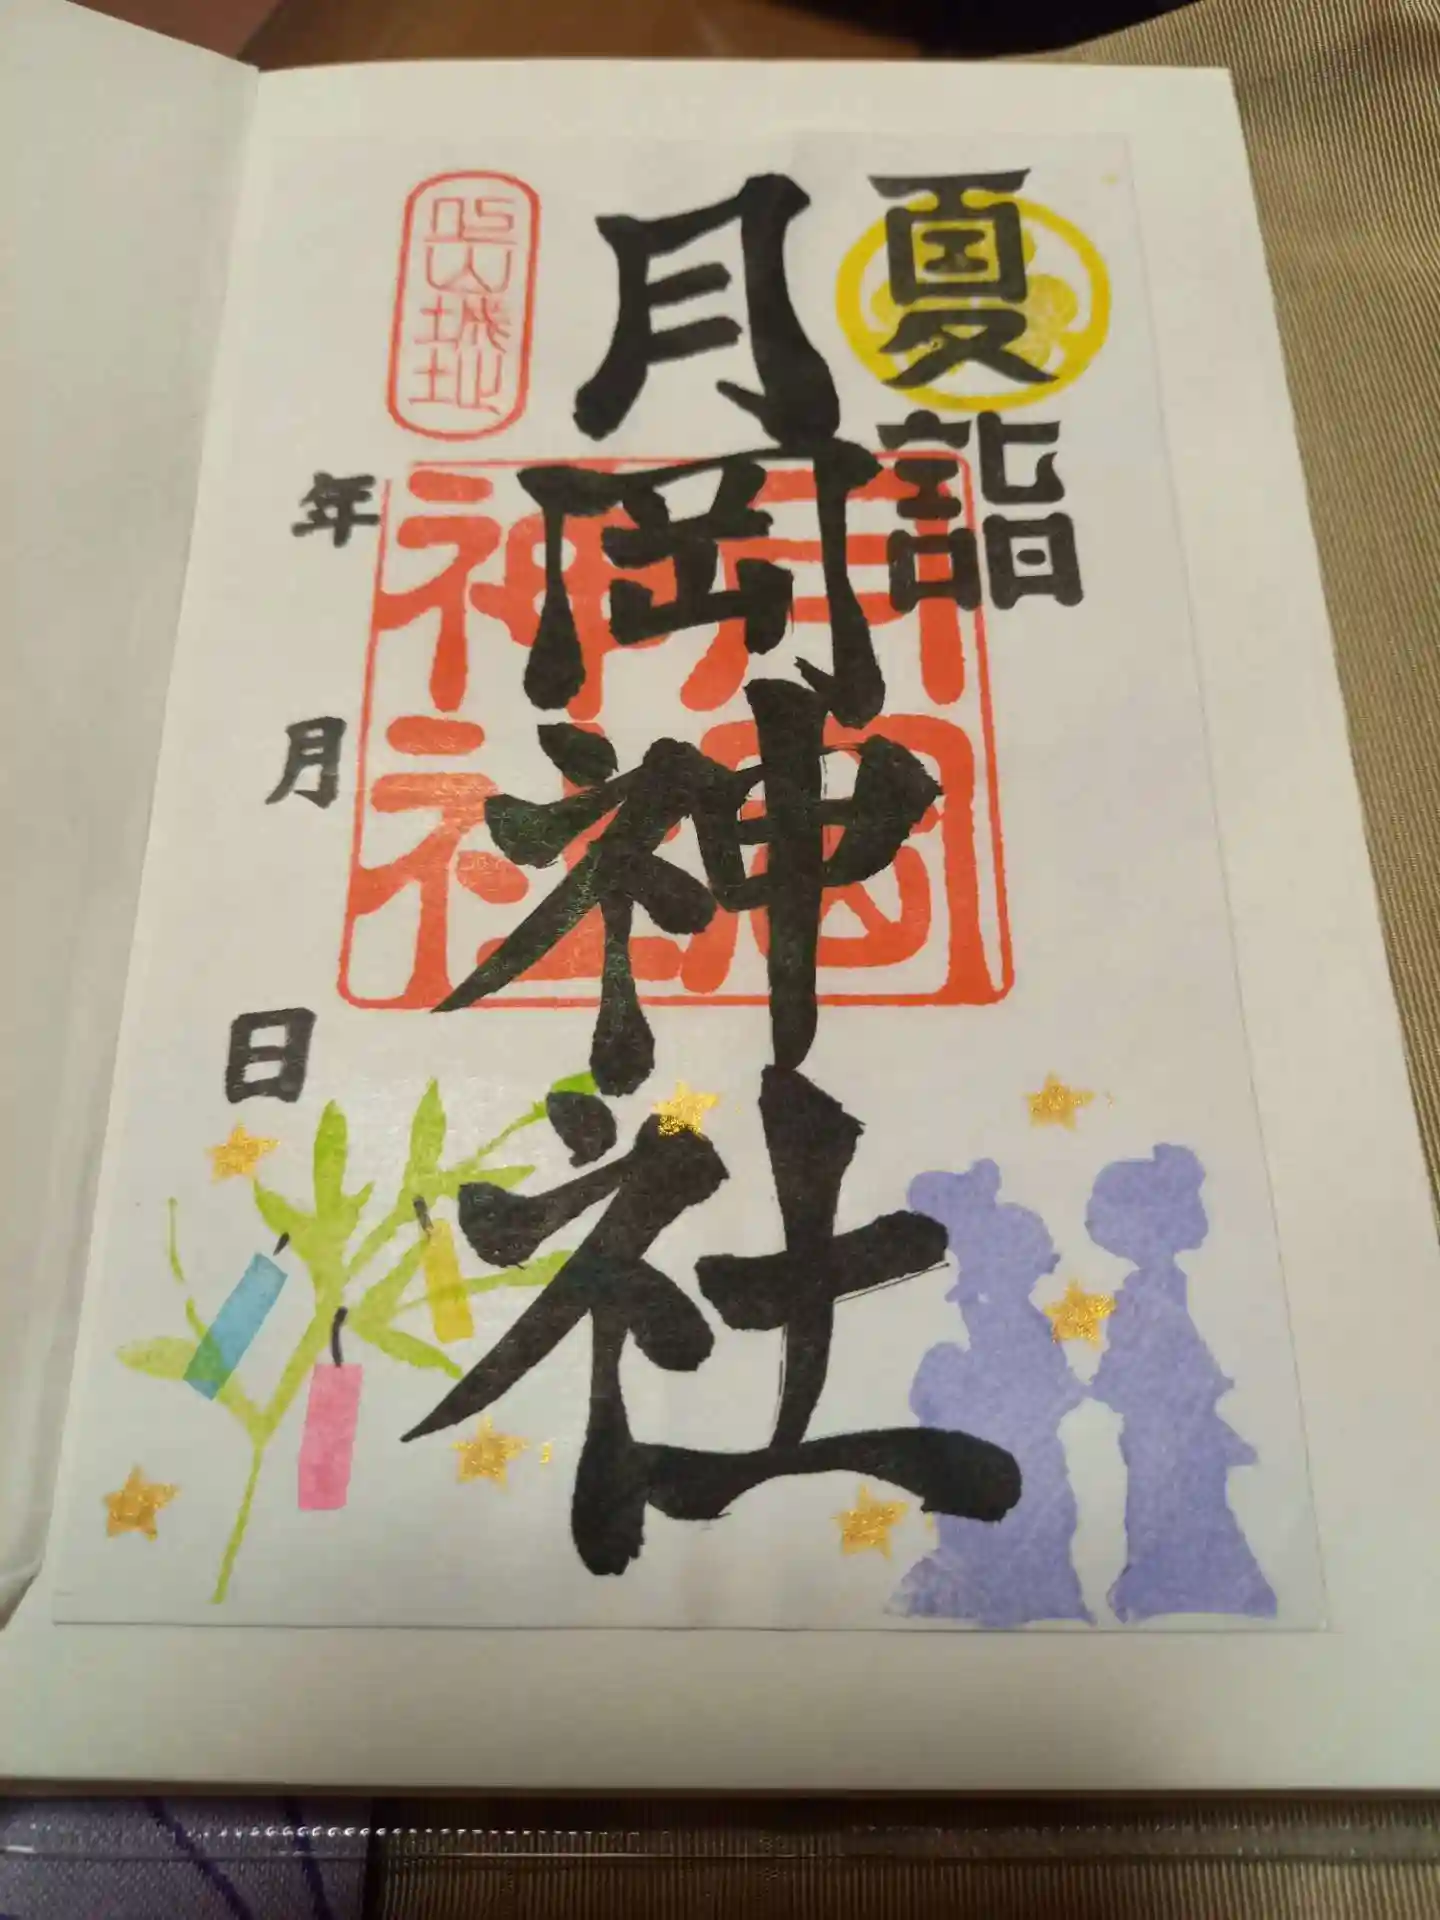 夏詣
月岡神社
月岡神社
上山城址
年
月
日